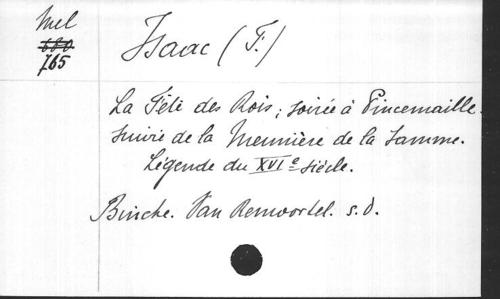 Mel
680
765
Isaac (F.)
La Fête des Rois; soirée à Pincemaille.
suivie de la Meunière de la Samme.
Légende du XVIe siècle.
Binche. Van Remoortel. s.d.